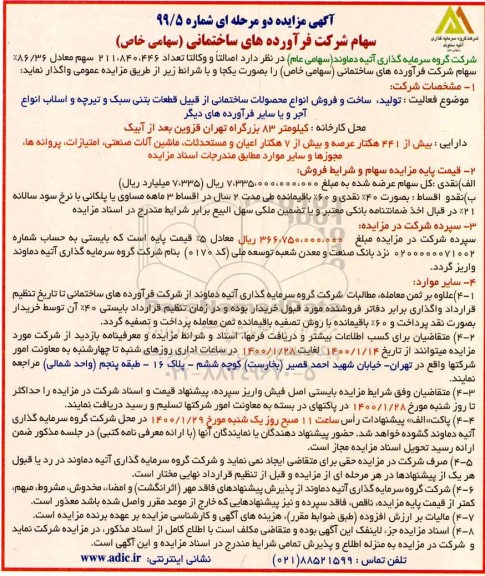 شرکت گروه سرمایه گذاری
آتیه دماوند
آگهی مزایده دو مرحله ای شماره ۹۹/۵
سهام شرکت فرآورده های ساختمانی (سهامی خاص)
شرکت گروه سرمایه گذاری آتیه دماوند(سهامی عام) در نظر دارد اصالتاً و وکالتا تعداد ۲۱۱،۸۴۰،۴۴۶ سهم معادل ۸۶/۳۶٪
سهام شرکت فرآورده های ساختمانی (سهامی خاص) را بصورت یکجا و با شرایط زیر از طریق مزایده عمومی واگذار نماید:
۱- مشخصات شرکت:
موضوع فعالیت : تولید، ساخت و فروش انواع محصولات ساختمانی از قبیل قطعات بتنی سبک و تیرچه و اسلاب انواع
آجر و یا سایر فرآورده های دیگر
محل کارخانه : کیلومتر ۸۳ بزرگراه تهران قزوین بعد از آبیک
دارایی : بیش از ۴۴۱ هکتار عرصه و بیش از ۷ هکتار اعیان و مستحدثات، ماشین آلات صنعتی، امتیازات، پروانه ها،
مجوزها و سایر موارد مطابق مندرجات اسناد مزایده
۲- قیمت پایه مزایده سهام و شرایط فروش:
الف)نقدی :کل سهام عرضه شده به مبلغ ۷،۳۳۵،۰۰۰،۰۰۰،۰۰۰ ریال (۷،۳۳۵ میلیارد ریال)
ب)نقدو اقساط : بصورت ۴۰٪ نقدی و ۶۰٪ باقیمانده طی مدت ۲ سال در اقساط ۳ ماهه مساوی یا پلکانی با نرخ سود سالانه
۲۱٪ در قبال اخذ ضمانتنامه بانکی معتبر و یا تضمین ملکی سهل البیع برابر شرایط مندرج در اسناد مزایده
۳- سپرده شرکت در مزایده:
سپرده شرکت در مزایده مبلغ ۳۶۶،۷۵۰،۰۰۰،۰۰۰ ریال معادل ۵٪ قیمت پایه است که بایستی به حساب شماره
۰۲۰۰۰۰۰۰۷۱۰۰۲ نزد بانک صنعت و معدن شعبه توسعه ملی (کد ۰۱۷۰) بنام شرکت گروه سرمایه گذاری آتیه دماوند
واریز گردد.
۴- سایر موارد:
۴-۱)علاوه بر ثمن معامله، مطالبات شرکت گروه سرمایه گذاری آتیه دماوند از شرکت فرآورده های ساختمانی تا تاریخ تنظیم
قرارداد واگذاری برابر دفاتر فروشنده مورد قبول خریدار بوده و در زمان تنظیم قرارداد بایستی ۴۰٪ آن توسط خریدار
بصورت نقد پرداخت و ۶۰٪ باقیمانده با روش تصفیه باقیمانده ثمن معامله پرداخت و تصفیه گردد.
۴-۲) متقاضیان برای کسب اطلاعات بیشتر و دریافت فرمها، اسناد و شرایط مزایده و معرفینامه بازدید از شرکت مورد
مزایده میتوانند از تاریخ ۱۴۰۰/۱/۱۴ لغایت ۱۴۰۰/۱/۲۸ در ساعات اداری روزهای شنبه تا چهارشنبه به معاونت امور
شرکتها واقع در تهران- خیابان شهید احمد قصیر (بخارست) کوچه ششم - پلاک ۱۶ - طبقه پنجم (واحد شمالی) مراجعه
نمایند.
۴-۳) متقاضیان وفق شرایط مزایده بایستی اصل فیش واریز سپرده، پیشنهاد قیمت و اسناد شرکت در مزایده را حداکثر
تا روز شنبه مورخ ۱۴۰۰/۱/۲۸ در پاکتهای در بسته به معاونت امور شرکتها تسلیم و رسید دریافت نمایند.
۴-۴) پاکت»الف» پیشنهادات رأس ساعت ۱۱ صبح روز یک شنبه مورخ ۱۴۰۰/۱/۲۹ در محل شرکت گروه سرمایه گذاری
آتیه دماوند گشوده خواهد شد. حضور پیشنهاد دهندگان یا نمایندگان آنها (با ارائه معرفی نامه کتبی) در جلسه مذکور ضمن
ارائه رسید تحویل اسناد مزایده مجاز است.
۴-۵) صرف شرکت در مزایده حقی برای متقاضی ایجاد نمی نماید و شرکت گروه سرمایه گذاری آتیه دماوند در رد یا قبول
هر یک از پیشنهادها در هر مرحله ای از مزایده و قبل از تنظیم قرارداد نهایی مختار است.
۴-۶) شرکت گروه سرمایه گذاری آتیه دماوند از پذیرش پیشنهادهای فاقد مهر (اثرانگشت) و امضاء، مخدوش، مشروط، مبهم،
کمتر از قیمت پایه مزایده، ناقص، فاقد سپرده و نیز پیشنهادهایی که خارج از موعد مقرر واصل شده باشد معذور است.
۴-۷) مالیات بر ارزش افزوده (طبق ضوابط مقرر)، هزینه های آگهی و کارشناسی مزایده بر عهده برنده مزایده است.
۴-۸) اسناد مزایده جزء لاینفک این آگهی بوده و متقاضی مکلف است با اطلاع کامل از اسناد مذکور، در مزایده شرکت نماید
و شرکت در مزایده به منزله اطلاع و پذیرش تمامی شرایط مندرج در اسناد مزایده و این آگهی است.
تلفن تماس : ۸۸۵۲۱۵۹۹(۰۲۱) نشانی اینترنتی: www.adic.ir